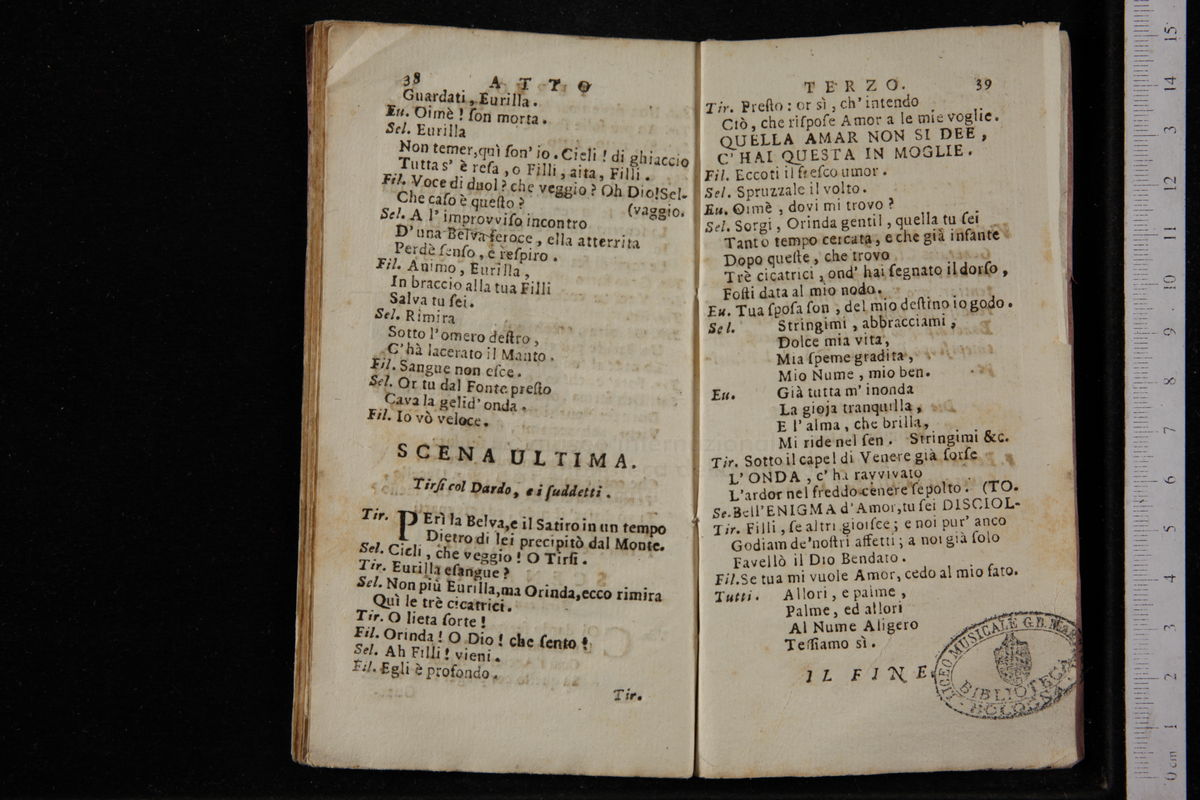 38 ATTO
Guardati, Eurilla.
Eu. Oimè! ſon morta.
Sel. Eurilla
Non temer, quì ſon' io. Cieli! di ghiaccio
Tutta s' è reſa, o Filli, aita, Filli.
Fil. Voce di duol? che veggio? Oh Dio! Sel-
Che caſo è queſto? (vaggio.
Sel. A l' improvviſo incontro
D' una Belva feroce, ella atterrita
Perdè ſenſo, e reſpiro.
Fil. Animo, Eurilla,
In braccio alla tua Filli
Salva tu ſei.
Sel. Rimira
Sotto l' omero deſtro,
C' hà lacerato il Manto.
Fil. Sangue non eſce.
Sel. Or tu dal Fonte preſto
Cava la gelid' onda.
Fil. Io vò veloce.
SCENA ULTIMA.
Tirſi col Dardo, e i ſuddetti.
Tir. PErì la Belva, e il Satiro in un tempo
Dietro di lei precipitò dal Monte.
Sel. Cieli, che veggio! O Tirſi.
Tir. Eurilla eſangue?
Sel. Non più Eurilla, ma Orinda, ecco rimira
Quì le trè cicatrici.
Tir. O lieta ſorte!
Fil. Orinda! O Dio! che ſento!
Sel. Ah Filli! vieni.
Fil. Egli è profondo.
Tir.
TERZO. 39
Tir. Preſto: or sì, ch' intendo
Ciò, che riſpoſe Amor a le mie voglie.
QUELLA AMAR NON SI DEE,
C' HAI QUESTA IN MOGLIE.
Fil. Eccoti il freſco umor.
Sel. Spruzzale il volto.
Eu. Oimè, dovi mi trovo?
Sel. Sorgi, Orinda gentil, quella tu ſei
Tanto tempo cercata, e che già infante
Dopo queſte, che trovo
Trè cicatrici, ond' hai ſegnato il dorſo,
Foſti data al mio nodo.
Eu. Tua ſpoſa ſon, del mio deſtino io godo.
Sel. Stringimi, abbracciami,
Dolce mia vita,
Mia ſpeme gradita,
Mio Nume, mio ben.
Eu. Già tutta m' inonda
La gioja tranquilla,
E l' alma, che brilla,
Mi ride nel ſen. Stringimi &c.
Tir. Sotto il capel di Venere già forſe
L' ONDA, c' ha ravvivato
L' ardor nel freddo cenere ſepolto. (TO.
Se. Bell' ENIGMA d' Amor, tu ſei DISCIOL-
Tir. Filli, ſe altri gioiſce; e noi pur' anco
Godiam de' noſtri affetti; a noi già ſolo
Favellò il Dio Bendato.
Fil. Se tua mi vuole Amor, cedo al mio fato.
Tutti. Allori, e palme,
Palme, ed allori
Al Nume Aligero
Teſſiamo sì.
IL FINE.
LICEO MUSICALE G.B. MARTINI
BIBLIOTECA
BOLOGNA